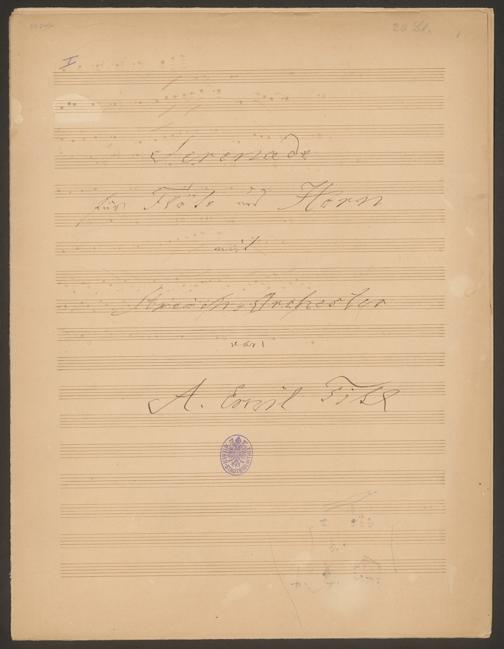 I
Serenade
für Flöte und Horn
mit
Streich-Orchester
von
A. Emil Titl